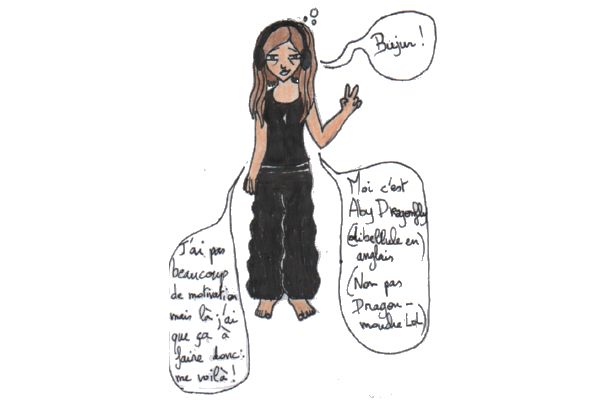 Biejur !
Moi c'est
Aby Dragonfly
(libellule en)
anglais
(Non pas
Dragon-
mouche LoL)
J'ai pas
beaucoup
de motivation
mais là j'ai
que ça à
faire donc :
me voilà !